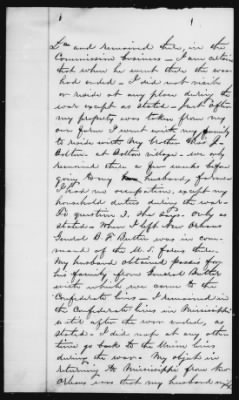 La and remained here, in the
Commission business - I am certain
that when he went there the war
had ended - I did not visit
or reside at any place during the
war except as stated - Just after
my property was taken from my
our farm I went with my family
to reside with my brother
Bolton at Bolton village - we only
remained there a few weeks before
going to my husband, for
I had no occupation, except my
household duties during the war -
To question 3. she says. Only as
stated - When I left New Orleans
General B. F. Butler was in com-
mand of the U. S. forces there.
My husband obtained passes for
his family from General Butler
with which we came to the
Confederate lines - I remained in
the Confederate lines in Mississippi
until after the war ended, as
stated - I did not at any other
time go back to the Union lines
during the war - My object in
returning to Mississippi from New
Orleans was that my husband